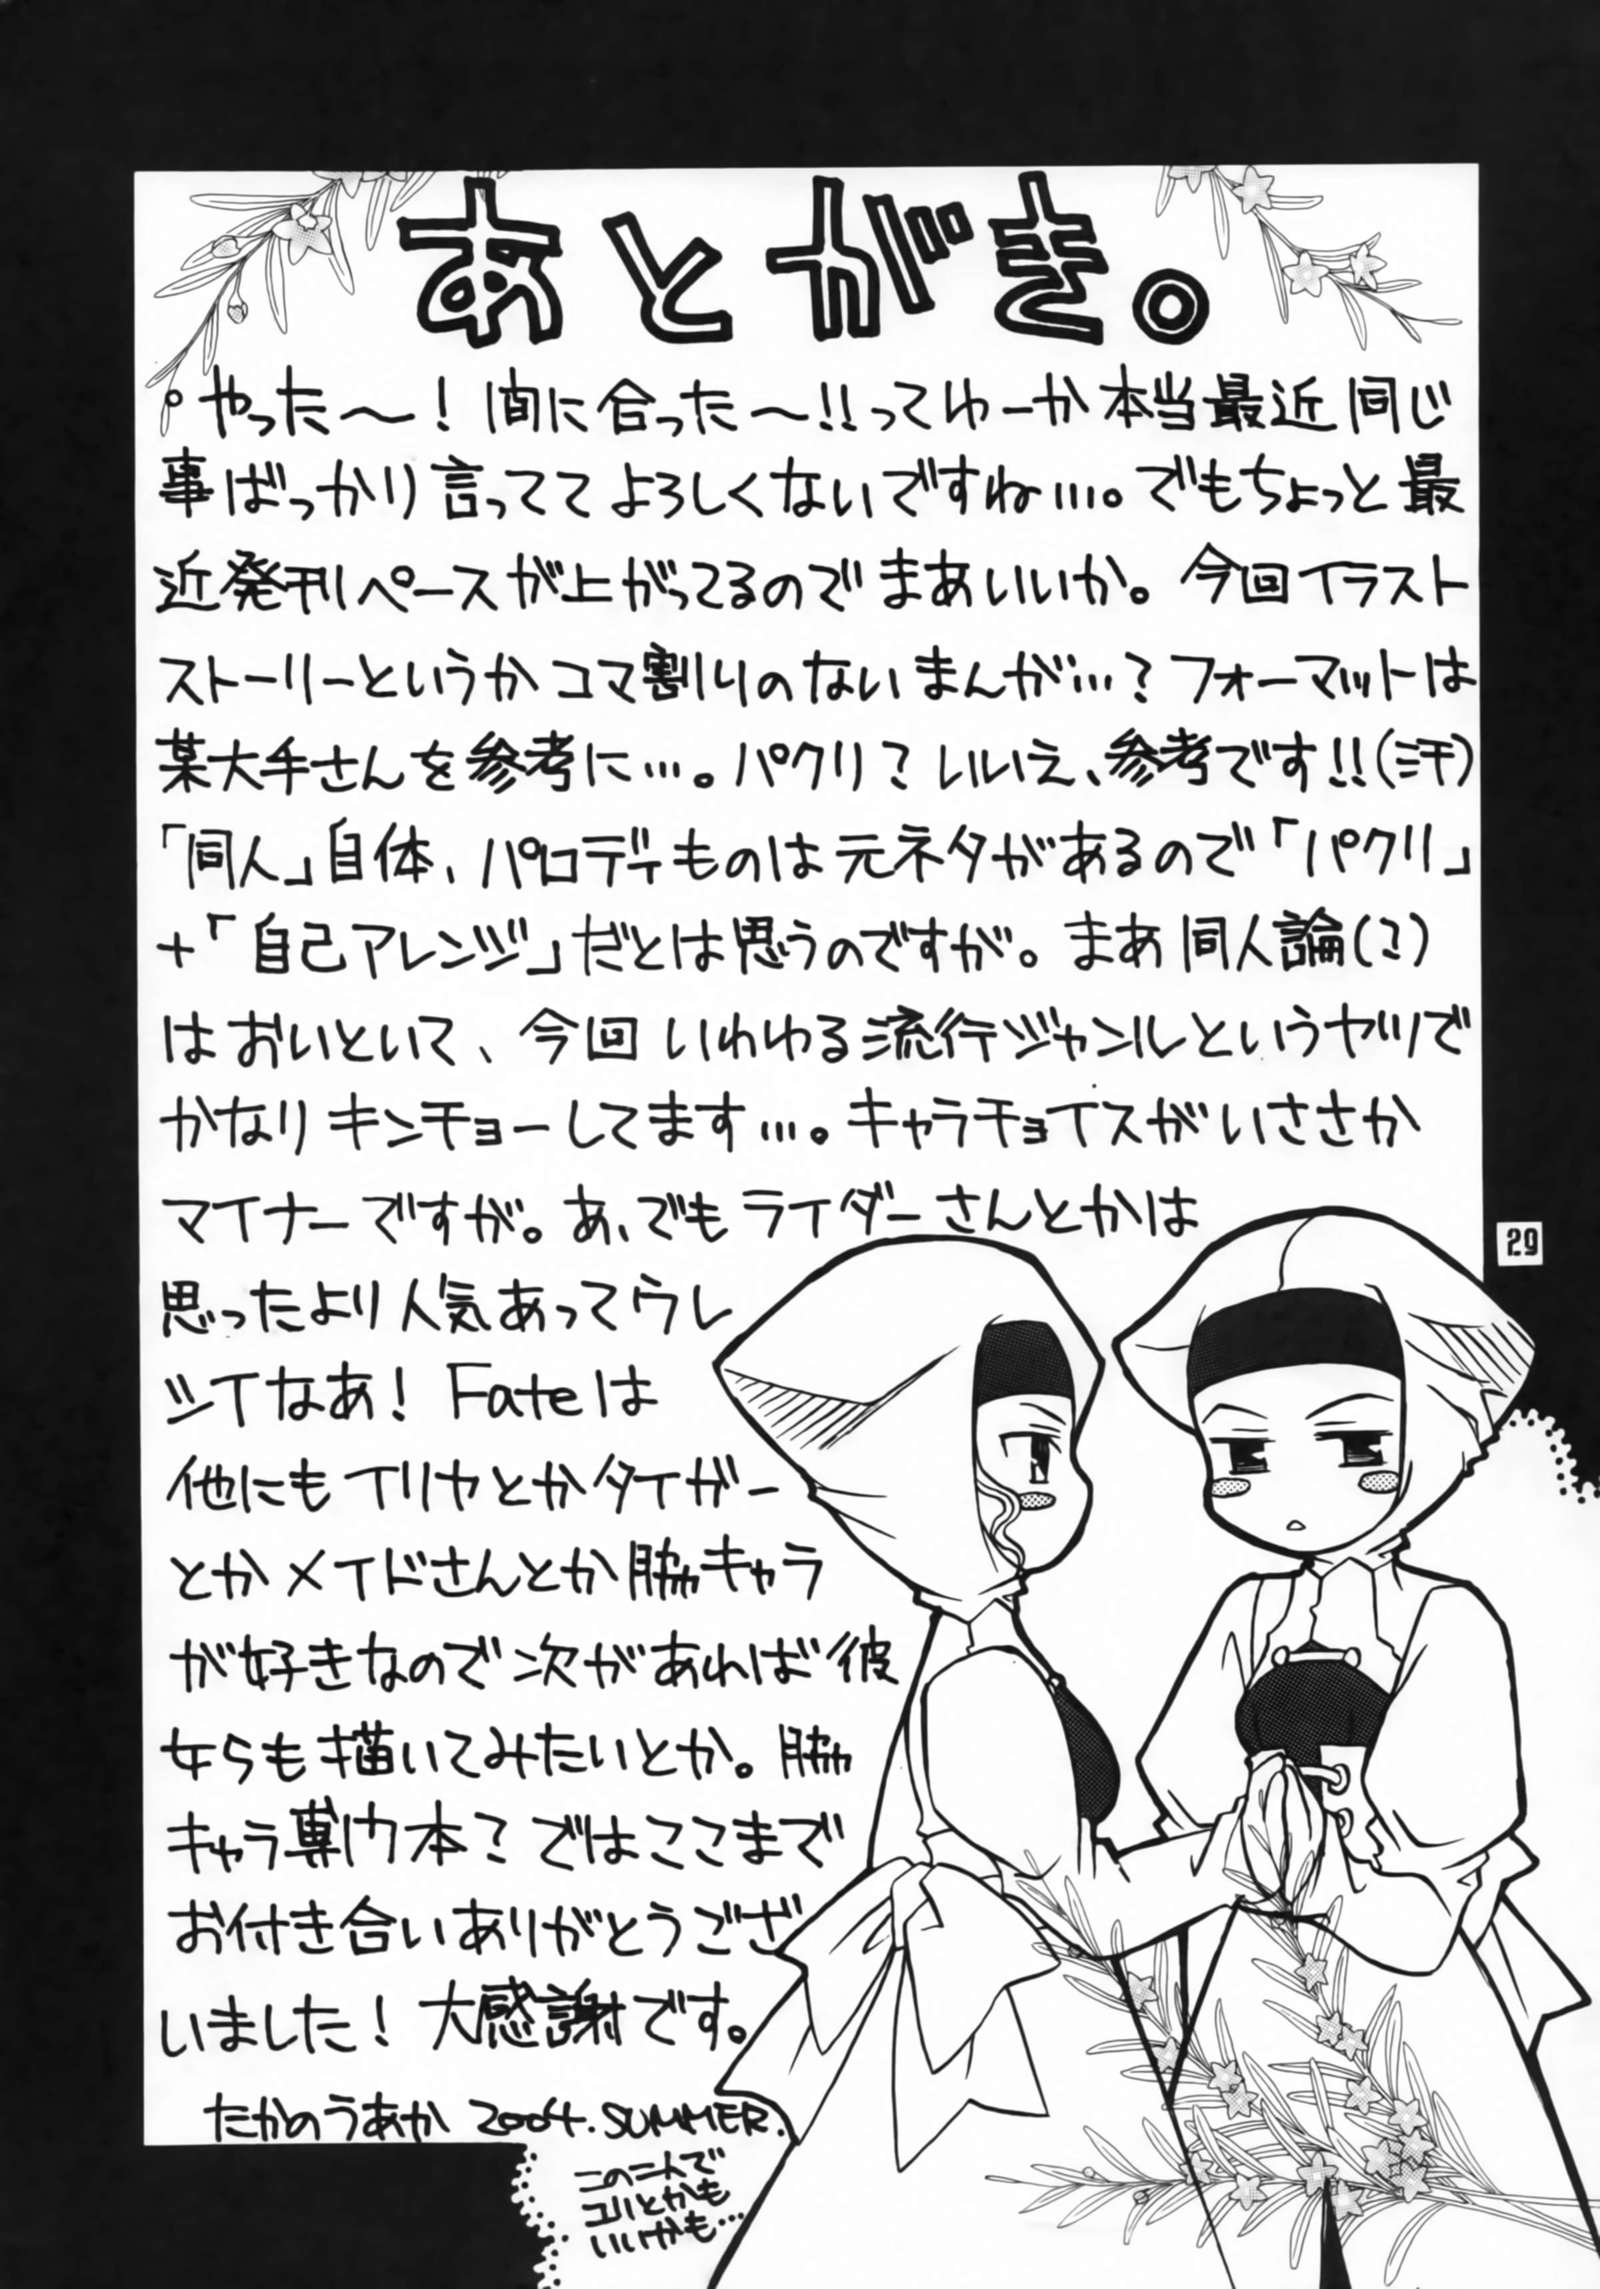 あとがき。
。やった〜！間に合った〜!!ってゆーか本当最近同じ
事ばっかり言っててよろしくないですね…。でもちょっと最
近発刊ペースが上がってるのでまあいいか。今回イラスト
ストーリーというかコマ割りのないまんが…？フォーマットは
某大手さんを参考に…。パクリ？いいえ、参考です!!(汗)
「同人」自体、パロディものは元ネタがあるので「パクリ」
+「自己アレンジ」だとは思うのですが。まあ同人論(？)
はおいといて、今回いわゆる流行ジャンルというヤツで
かなりキンチョーしてます…。キャラチョイスがいささか
マイナーですが。あ、でもライダーさんとかは
思ったより人気あってウレ
シイなあ！Fateは
他にもイリヤとかタイガー
とかメイドさんとか脇キャラ
が好きなので次があれば彼
女らも描いてみたいとか。脇
キャラ専門本？ではここまで
お付き合いありがとうござ
いました！大感謝です。
たかのうあか 2004.SUMMER.
このニ人で
コハとかも
いいかも…
29